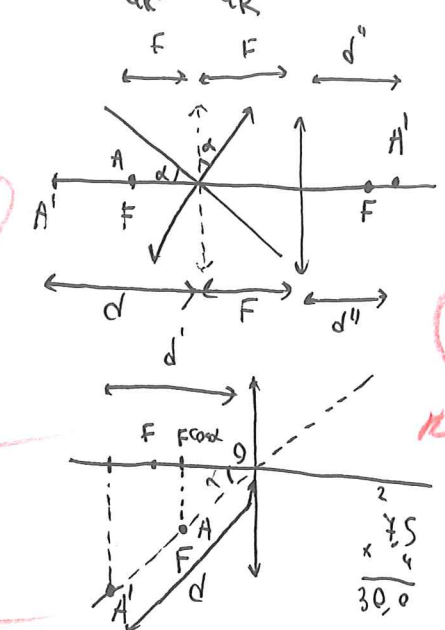 F F d"
α
A α A'
A' F F
d F d"
d'
F Fcosα O
α
A
F
A' d
2
7,5
x 4
30,0